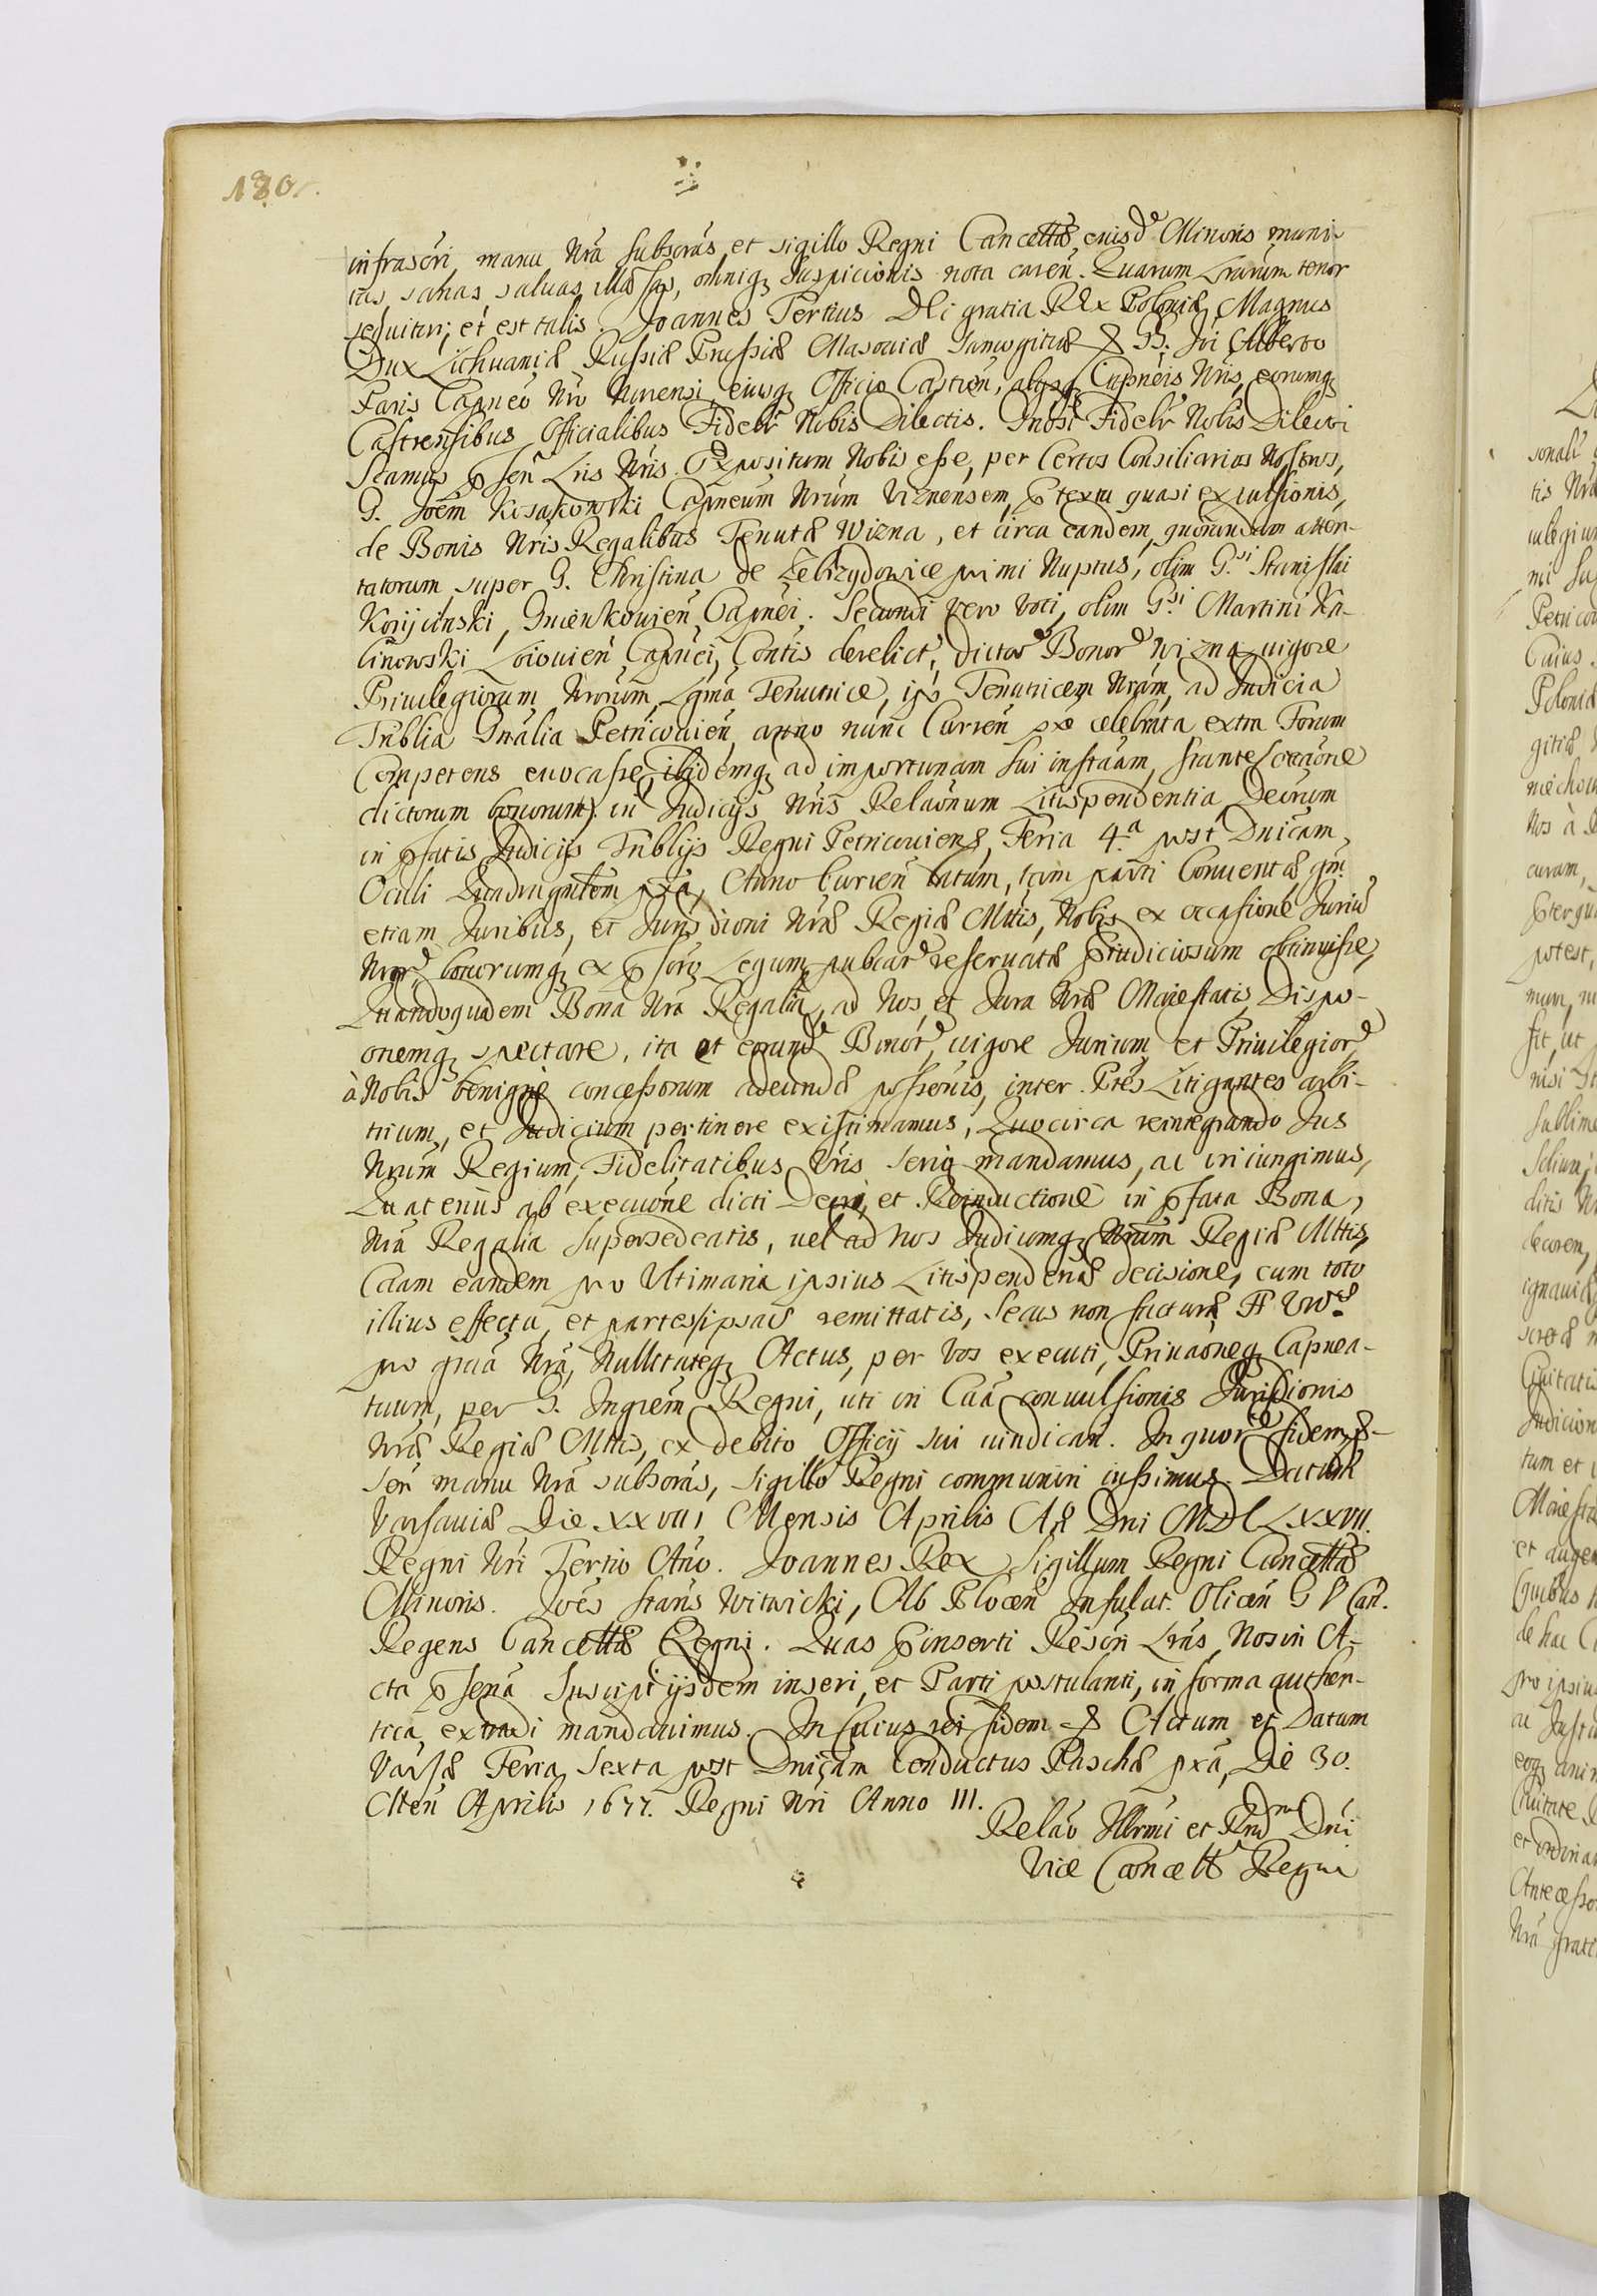 180.
infrascri manu Nra subscras, et sigillo Regni Cancellae eiusd Minoris muni-
tas, sanas, saluas, illaesas, omniq suspicionis nota caren. Quarum Lrarum tenor
sequitur, et est talis. Joannes Tertius Dei gratia Rex Poloniae, Magnus
Dux Lithuaniae Russiae Prussiae Masouiae Samogitiae & Alberto
Capneo Nro Nurensi, eiusq Officio Castren, alijsq Capneis Nris, eorumq
Castrensibus Officialibus Fideltr Nobis Dilectis. Gnosi Fideltr Nobis Dilecti
Lris Nris Expositum Nobis esse, per Certos Consiliarios Nostros,
G. Joem Kosakowski Capneum Nrum Viznensem, Ptextu quasi expulsionis,
de Bonis Nris Regalibus Tenutae Wizna, et circa eandem, quorundam atten-
tatorum super G. Christina de Zebrzydowice primi Nuptus, olim Gsi Stanislai
Koryciński, Capnei. Secundi vero Voti, olim Gsi Martini Ka-
linowski Loiouien Capnei, Contis derelict, dictor Bonor Wizna uigore
Priuilegiorum Nrorum, Lgma Tenutrice, ipsa Tenutricem Nram, ad Judicia
Tnblia Gnalia Petricouien, anno nunc Curren pxe celebrata, extra Forum
Competens euocasse, ibidemq ad importunam sui instaam, stante
dictorum bonorum in Judicijs Nris Relaonum Litispendentia, Decrum
in pfatis Judicijs Tnblijs Regni Petricouiens, Feria 4.a post Dnicam
Oculi Quadragesilem pxa, Anno Curren latum, tam parti Conuentae qm
etiam Juribus, et Jurisdioni Nrae Regiae Mttis, Nobis ex occasione Jurium
Nror bonorumq ex pscro Legum publicar reseruatae Priudiciosum obtinuisse,
Quandoquidem Bona Nra Regalia, ad Nos, et Jura Nrae Maiestatis, Dispo-
onemq spectare, ita et eorund Bonor, uigore Jurium, et Priuilegior
à Nobis benigne concessorum adeundae possonis, inter Ptes Litigantes arbi-
trium, et Judicium pertinere existimamus, Quocirca reintegrando Jus
Nrum Regium, Fidelitatibus Vris serio mandamus, ac iniungimus,
Quatenus ab execuone dicti Decri, et Reinductione in pfata Bona,
Nra Regalia supersedeatis, uel ad Nos Judiciumq Nrum Regiae Mttis,
Caam eandem pro Ultimaria ipsius Litispendenae decisione, cum toto
illius effectu, et partes ipsas remittatis, Secus non facturae FF Vrae
pro graa Nra, Nullitateq Actus, per Vos executi, Priuaoneq Capnea-
tuum, per G. Regni, uti in Caa conuulsionis Jurisdionis
Nrae Regiae Mttis, ex debito Officij sui uindican. In quor fidem p-
sen manu Nra subscras, Sigillo Regni communiri iussimus. Datum
Varsauiae Die XXVIII Mensis Aprilis Ao Dni MDCLXXVII.
Regni Nri Tertio Ano. Joannes Rex Sigillum Regni Cancellae
Minoris. Joes Stans Witwicki, Ab Plocen Infulat. Olicen G V Can.
Regens Cancellae Regni. Quas pinserti Rescri Lras, Nos in A-
cta psena Suscipi ijsdem inseri, et Parti postulanti, in forma authen-
tica, extradi mandauimus. In Cuius rei fidem & Actum et Datum
Varsae Feria Sexta post Dnicam Conductus Paschae pxa, Die 30.
Men Aprilis 1677. Regni Nri Anno III.
Relao Illrmi et Rndm Dni
Vice Cancell Regni